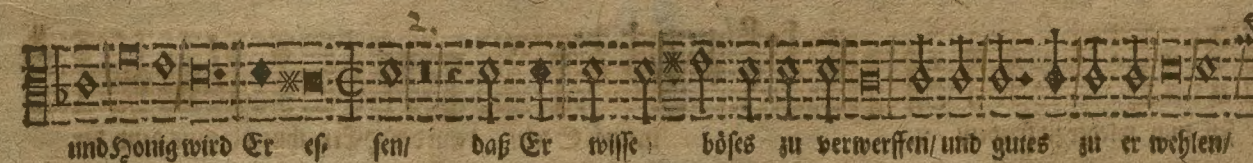 2.
und Honig wird Er es- sen/ daß Er wisse böses zu verwerffen/ und gutes zu er wehlen/